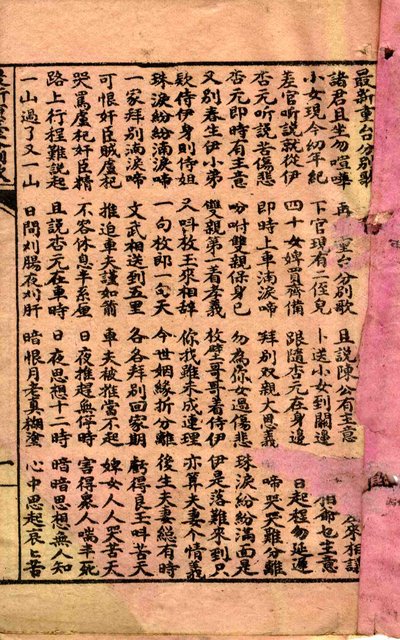 最新重台分別歌
諸君且坐勿喧嘩 再重台分別歌 且說陳公有主意 來相議
小女現今幼年紀 下官現有二侄兒 卜送小女到關邊 相郤乜生意
差官听說就從伊 四十女婢罵齊備 跟隨杏元在身邊 日起程勿延遲
杏元听說苦傷悲 即時上車滿淚啼 拜別双親大恩義 啼哭哭難分離
杏元即時有主意 吩咐雙親保身已 勿為你女過傷悲 珠淚紛紛滿面是
又別春生伊小弟 雙親第一着孝義 枚壁哥哥着侍伊 伊是落難來到只
欵侍伊身則侍姐 又叫枚王來相辞 你我雖未成連理 亦算夫妻个情義
珠淚紛紛滿淚啼 一句枚郎一句天 今世姻緣折分離 後生夫妻總有時
一家拜別滿淚啼 文武相送到五里 各各拜別回家期 虧得良玉叫苦天
可恨奸臣賊盧杞 推迫車夫謹如箭 車夫被推當不起 婢女人人哭苦天
哭罵盧杞奸臣精 不容休息半系厘 日夜推趕無停時 害得眾人喘半死
路上行程難說起 且說杏元在車時 日夜思想十二時 暗暗思想無人知
一山過了又一山 日間刈腸夜刈肝 暗恨月老真糊塗 心中思起哀亡苦